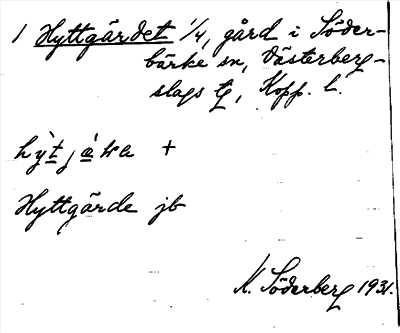 1 Hyttgärdet 1/4, gård i Söder-
bärke sn, Västerberg-
slags tg, Kopp. l.
+
Hyttgärde jb
K. Söderberg 1931.